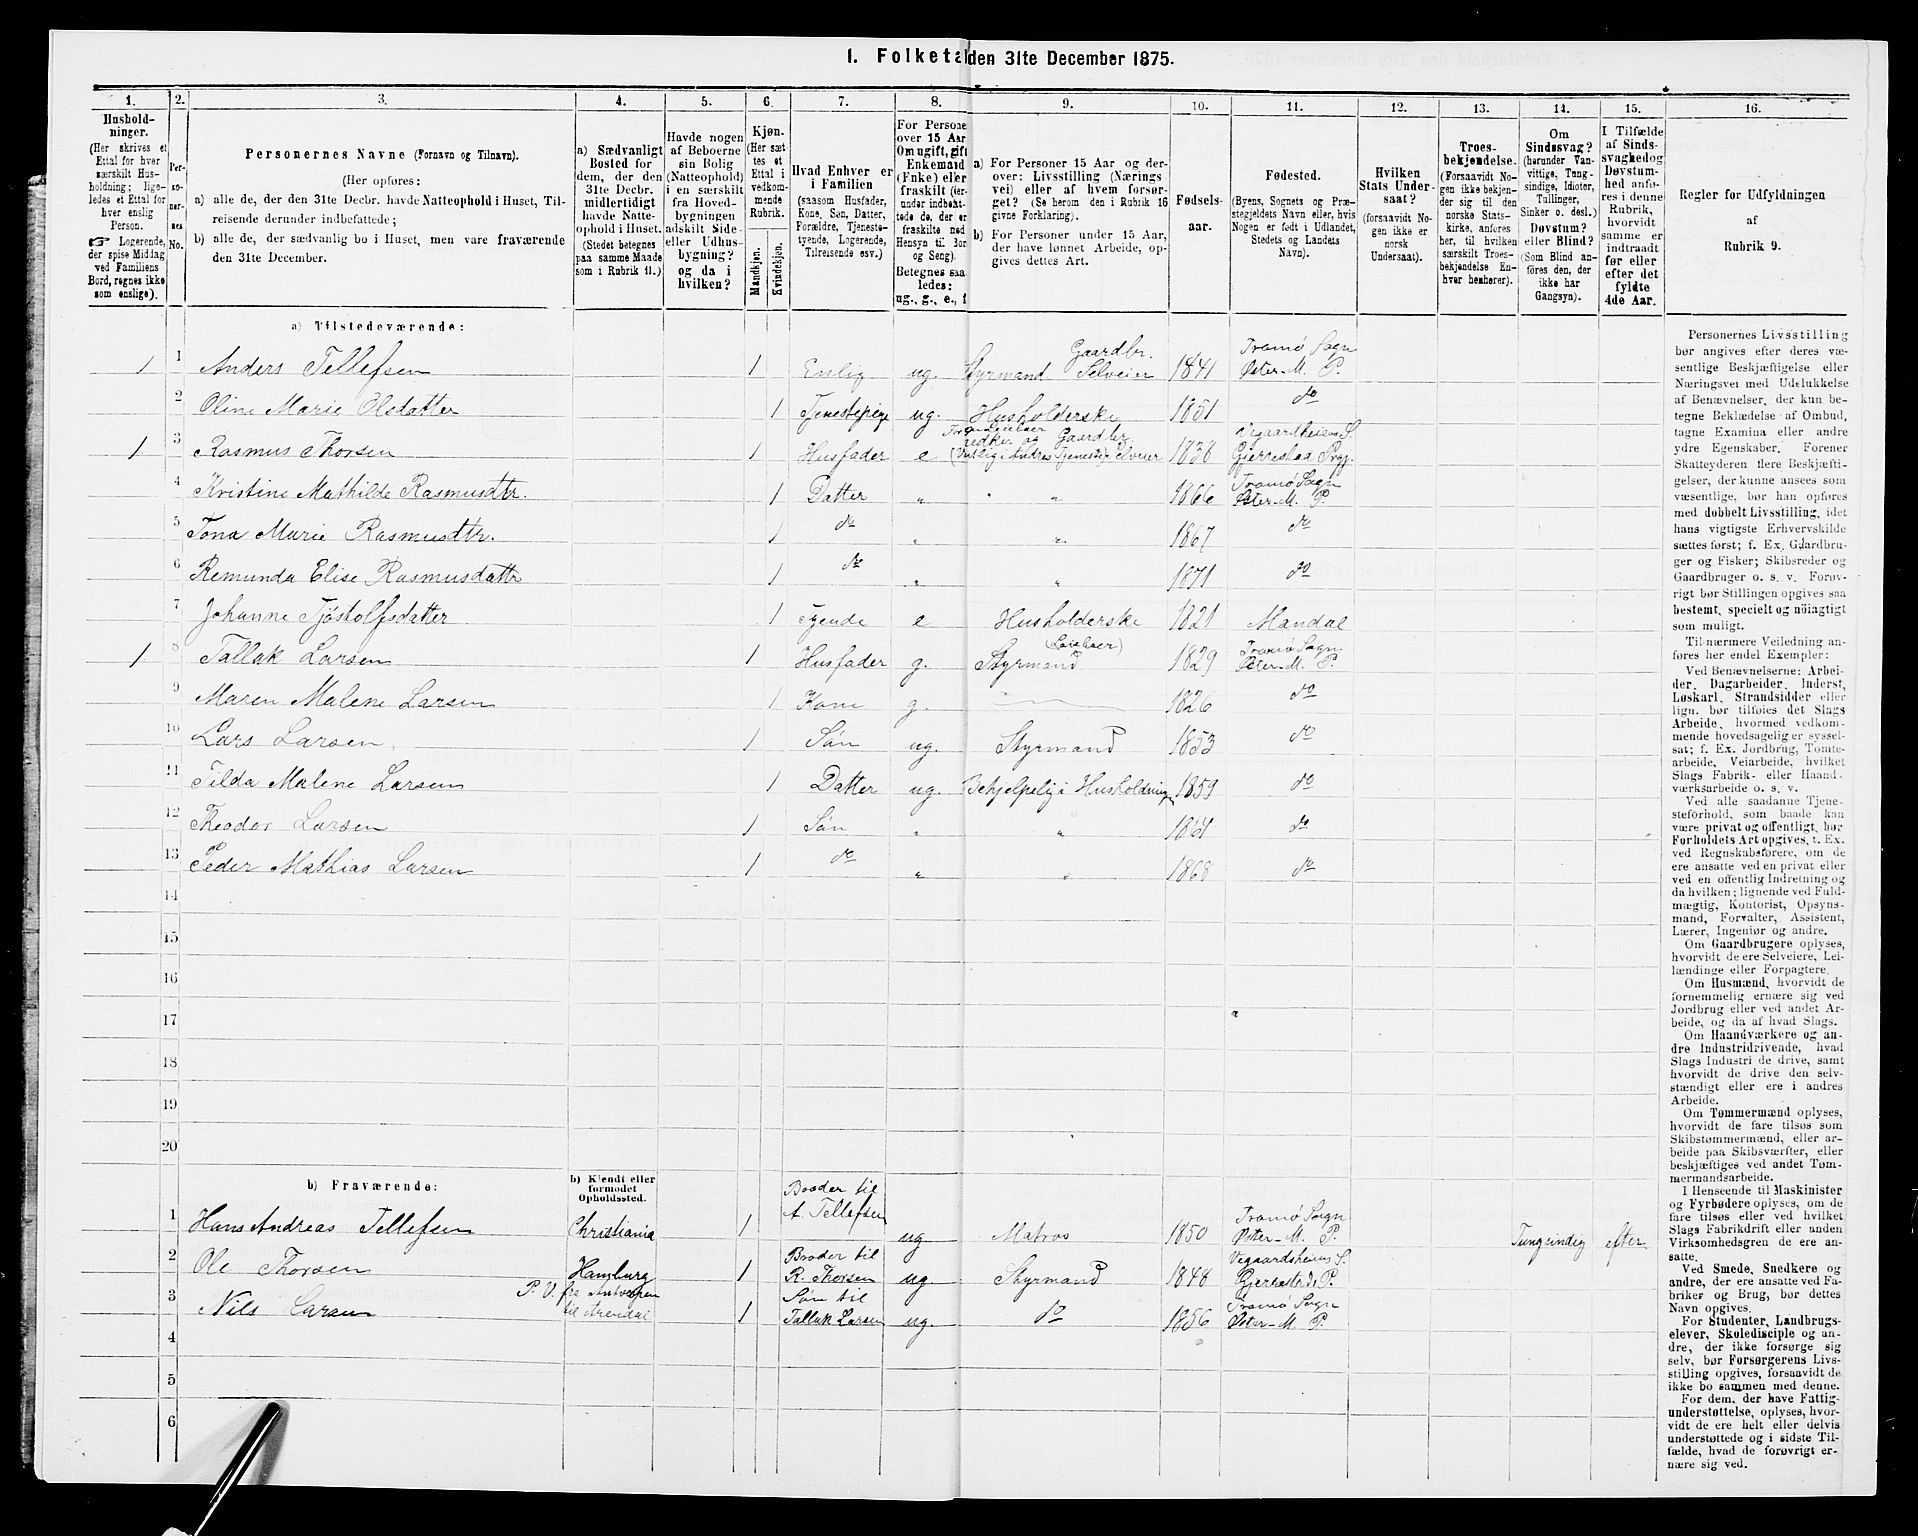 1. Folketal den 31te December 1875.
1. 2. 3. 4. 5. 6. 7. 8. 9. 10. 11. 12. 13. 14. 15. 16.
Hushold-
ninger.
(Her skrives et
Ettal for hver
særskilt Hus-
holdning; lige-
ledes et Ettal for
hver enslig
Person.
☞ Logerende,
der spise Middag
ved Familiens
Bord, regnes ikke
som enslige).
Per-
so-
ner-
nes
No.
Personernes Navne (Fornavn og Tilnavn).
(Her opføres:
a) alle de, der den 31te Decbr. havde Natteophold i Huset, Til-
reisende derunder indbefattede;
b) alle de, der sædvanlig bo i Huset, men vare fraværende
den 31te December.
a) Sædvanligt
Bosted for
dem, der den
31te Decbr.
midlertidigt
havde Natte-
ophold i Huset.
(Stedet betegnes
paa samme Maade
som i Rubrik 11.)
Havde nogen
af Beboerne
sin Bolig
(Natteophold)
i en særskilt
fra Hoved-
bygningen
adskilt Side-
eller Udhus-
bygning?
og da i
hvilken?
Kjøn.
(Her sæt-
tes et
Ettal i
vedkom-
mende
Rubrik.
Mandkjøn.
Kvindekjøn.
Hvad Enhver er
i Familien
(saasom Husfader,
Kone, Søn, Datter,
Forældre, Tjeneste-
tyende, Logerende,
Tilreisende osv.)
For Persone
over 15 Aar
Om ugift, gift
Enkemand
(Enke) eller
fraskilt (ier-
under indbefat-
tede de, der er
fraskilte med
Hensyn til Bor
og Seng).
Betegnes saa
ledes:
ug., g., e., f
a) For Personer 15 Aar og der-
over: Livsstilling (Nærings
vei) eller af hvem forsør-
get? (Se herom den i Rubrik 16
givne Forklaring).
b) For Personer under 15 Aar,
der have lønnet Arbeide, op-
gives dettes Art.
Fødsels-
aar.
Fødested.
(Byens, Sognets og Præ-
stegjeldets Navn eller, hvis
Nogen er født i Udlandet,
Stedets og Landets
Navn).
Hvilken
Stats Under-
saat?
(forsaavidt No-
gen ikke er
norsk
Undersaat).
Troes-
bekjendelse.
(Forsaavidt No-
gen ikke bekjen-
der sig til den
norske Stats-
kirke, anføres
her, til hvilken
særskilt Troes-
bekjendelse En-
hver henhører).
Om
Sindssvag?
(herunder Van-
vittige, Tung-
sindige, Idioter,
Tullinger,
Sinker o. desl.)
Døvstum?
eller Blind?
(Som Blind an-
føres den, der
ikke har
Gangsyn).
I Tilfælde
af Sinds-
svaghed og
Døvstum-
hed anfø-
res i denne
Rubrik,
hvorvidt
samme er
indtraadt
før eller
efter det
fyldte
4de Aar.
Regler for Udfyldningen
af
Rubrik 9.
a) Tilstedeværende:
1 1 Anders Tellefsen 1 Enlig ug. Styrmand Gaardbr. Selveier 1841 Tromø Sogn Øster-M. P.
2 Oline Marie Olsdatter 1 Tjenestepige ug. Husholderske 1851 do
1 3 Rasmus Thorsen 1 Husfader e og Gaardbr. Selveier 1838 Vegaardheiens S. Gjerrestad Prgj.
4 Kristine Mathilde Rasmusdtr. 1 Datter " " " 1866 Tromø Sogn Øster-M. P.
5 Tona Marie Rasmusdtr. 1 do " " 1867 do
6 Remunda Elise Rasmusdattr 1 do " " 1871 do
7 Johanne Tjøstolfsdatter 1 Tyende e Husholderske 1821 Mandal
1 8 Tallak Larsen 1 Husfader g. Styrmand 1829 Tromø Sogn Øster-M. P.
9 Maren Malene Larsen 1 Kone g. 1826 do
10 Lars Larsen 1 Søn ug. Styrmand 1853 do
11 Tilda Malene Larsen 1 Datter ug. Behjelpelig i Husholdningen 1859 do
12 Theodor Larsen 1 Søn " " 1861 do
13 Peder Mathias Larsen 1 do " " 1868 do
14
15
16
17
18
19
20
b) Fraværende:
b) Kjendt eller
formodet
Opholdssted.
1 Hans Andreas Tellefsen Christiania 1 Broder til A. Tellefsen ug Matros 1850 Tromø Sogn Øster-M. P. Tungsindig efter
2 Ole Thorsen Hamburg 1 Broder til R. Thorsen ug Styrmand 1848 Vegaardsheiens S. Gjerrestads P.
3 Nils Larsen P. V. fra Antverpen til Arendal 1 Søn til Tallak Larsen ug. do 1856 Tromø Sogn Øster-M. P.
4
5
6
Personernes Livsstilling
bør angives efter deres væ-
sentlige Beskjæftigelse eller
Næringsvei med Udelukkelse
af Benævnelser, der kun be-
tegne Beklædelse af Ombud,
tagne Examina eller andre
ydre Egenskaber. Forener
Skatteyderen flere Beskjæfti-
gelser, der kunne ansees som
væsentlige, bør han opføres
med dobbelt Livsstilling, idet
hans vigtigste Erhvervskilde
sættes først; f. Ex. Gaardbru-
ger og Fisker; Skibsreder og
Gaardbruger o. s. v. Forøv-
rigt bør Stillingen opgives saa
bestemt, specielt og nöiagtigt
som muligt.
Til nærmere Veiledning an-
føres her endel Exempler:
Ved Benævnelserne: Arbei-
der, Dagarbeider, Inderst,
Løskarl, Strandsidder eller
lign. bør tilføies det Slags
Arbeide, hvormed vedkom-
mende hovedsagelig er syssel-
sat; f. Ex. Jordbrug, Tomte-
arbeide, Veiarbeide, hvilket
Slags Fabrik- eller Haand-
værksarbeide o. s. v.
Ved alle saadanne Tjene-
steforhold, som baade kan
være privat og offentligt, bør
Forholdets Art opgives, t. Ex.
ved Regnskabsførere, om de
ere ansatte ved en privat eller
ved en offentlig Indretning og
da hvilken; lignende ved Fuld-
mægtig, Kontorist, Opsyns-
mand, Forvalter, Assistent,
Lærer, Ingeniør og andre.
Om Gaardbrugere oplyses,
hvorvidt de ere Selveiere, Lei-
lændinge eller Forpagtere.
Om Husmænd, hvorvidt de
fornemmelig ernære sig ved
Jordbrug eller ved andet Ar-
beide, og da af hvad Slags.
Om Haandværkere og an-
dre Industridrivende, hvad
Slags Industri de drive, samt
hvorvidt de drive den selv-
stændigt eller ere i andres
Arbeide.
Om Tømmermænd oplyses,
hvorvidt de fare tilsøs som
Skibstømmermænd, eller ar-
beide paa Skibsværfter, eller
beskjæftiges ved andet Tøm-
mermandsarbeide.
I Henseende til Maskinister
og Fyrbødere oplyses, om de
fare tilsøs eller ved hvilket
Slags Fabrikdrift eller anden
Virksomhedsgren de ere an-
satte.
Ved Smede, Snedkere og
andre, der ere ansatte ved Fa-
briker og Brug, bør dettes
Navn opgives.
For Studenter, Landbrugs-
elever, Skoledisciple og an-
dre, der ikke forsørge sig
selv, bør Forsørgerens Livs-
stilling opgives, forsaavidt de
ikke bo sammen med denne.
For dem, der have Fattig-
understøttelse, oplyses, hvor-
vidt de ere helt eller delvis
understøttede og i sidste Til-
fælde, hvad de forøvrigt er-
nære sig ved.